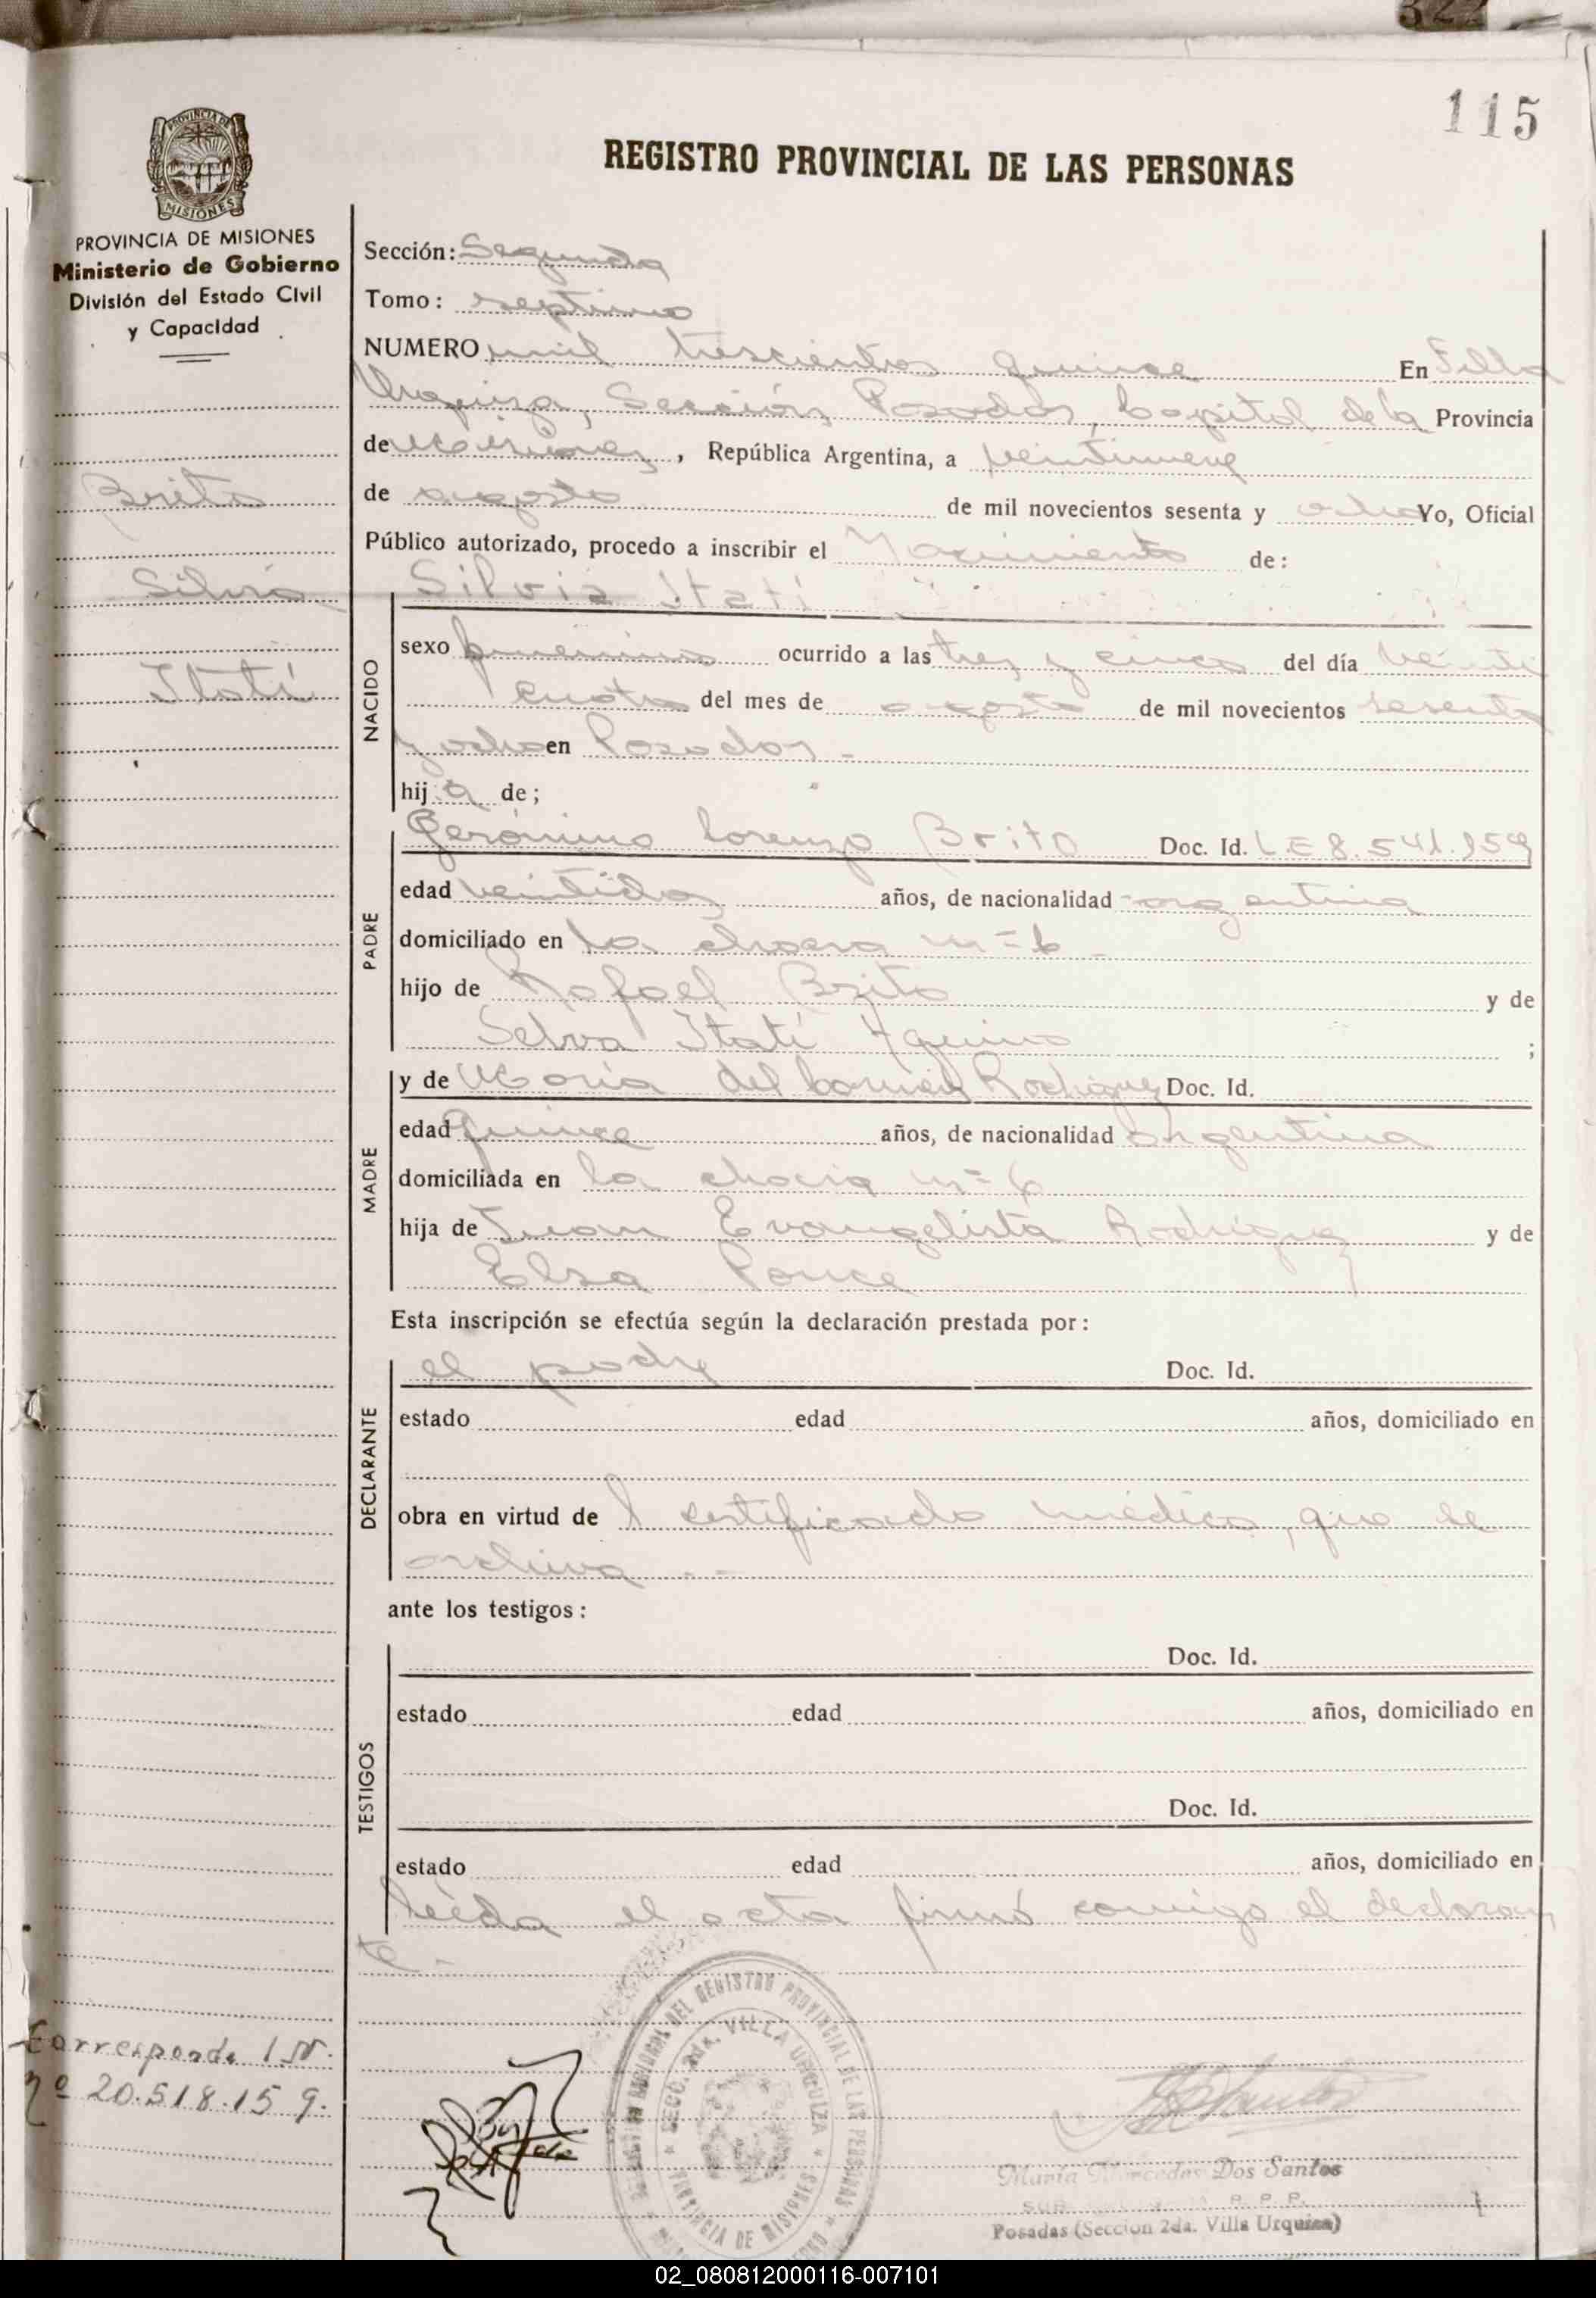 115
PROVINCIA DE
MISIONES
PROVINCIA DE MISIONES
Ministerio de Gobierno
División del Estado Civil
y Capacidad
REGISTRO PROVINCIAL DE LAS PERSONAS
Sección: Segunda
Tomo: septimo
NUMERO mil trescientos quince En Villa
Urquiza, Sección, Posadas, Capital de la Provincia
de Misiones, República Argentina, a veintinueve
de agosto de mil novecientos sesenta y ocho Yo, Oficial
Público autorizado, procedo a inscribir el Nacimiento de:
Brito
Silvia
Itatí
NACIDO
Silvia Itatí
sexo femenino ocurrido a las tres y cinco del día veinti
cuatro del mes de agosto de mil novecientos sesenta
y ocho en Posadas.-
hija de;
PADRE
Gerónimo Lorenzo Brito Doc. Id. L E 8.541.959
edad veintidos años, de nacionalidad argentina
domiciliado en la chacra n=6
hijo de Rafael Brito y de
Selva Itatí Aquino ;
MADRE
y de Maria del Carmen Rodriguez Doc. Id.
edad quince años, de nacionalidad argentina
domiciliada en la chacra n=6
hija de Juan Evangelista Rodriguez y de
Elsa Ponce
Esta inscripción se efectúa según la declaración prestada por:
DECLARANTE
el padre Doc. Id.
estado edad años, domiciliado en
obra en virtud de l certificado médico, que se
archiva --
ante los testigos:
TESTIGOS
Doc. Id.
estado edad años, domiciliado en
Doc. Id.
estado edad años, domiciliado en
leída el acta firmó conmigo el declaran
te.-
Corresponde I.N.
nº 20.518.159.
DEL REGISTRO PROVINCIAL DE LAS PERSONAS
SECC. 2da. VILLA URQUIZA
PROVINCIA DE MISIONES
María Mercedes Dos Santos
R. P. P.
Posadas (Sección 2da. Villa Urquiza)
02_080812000116-007101